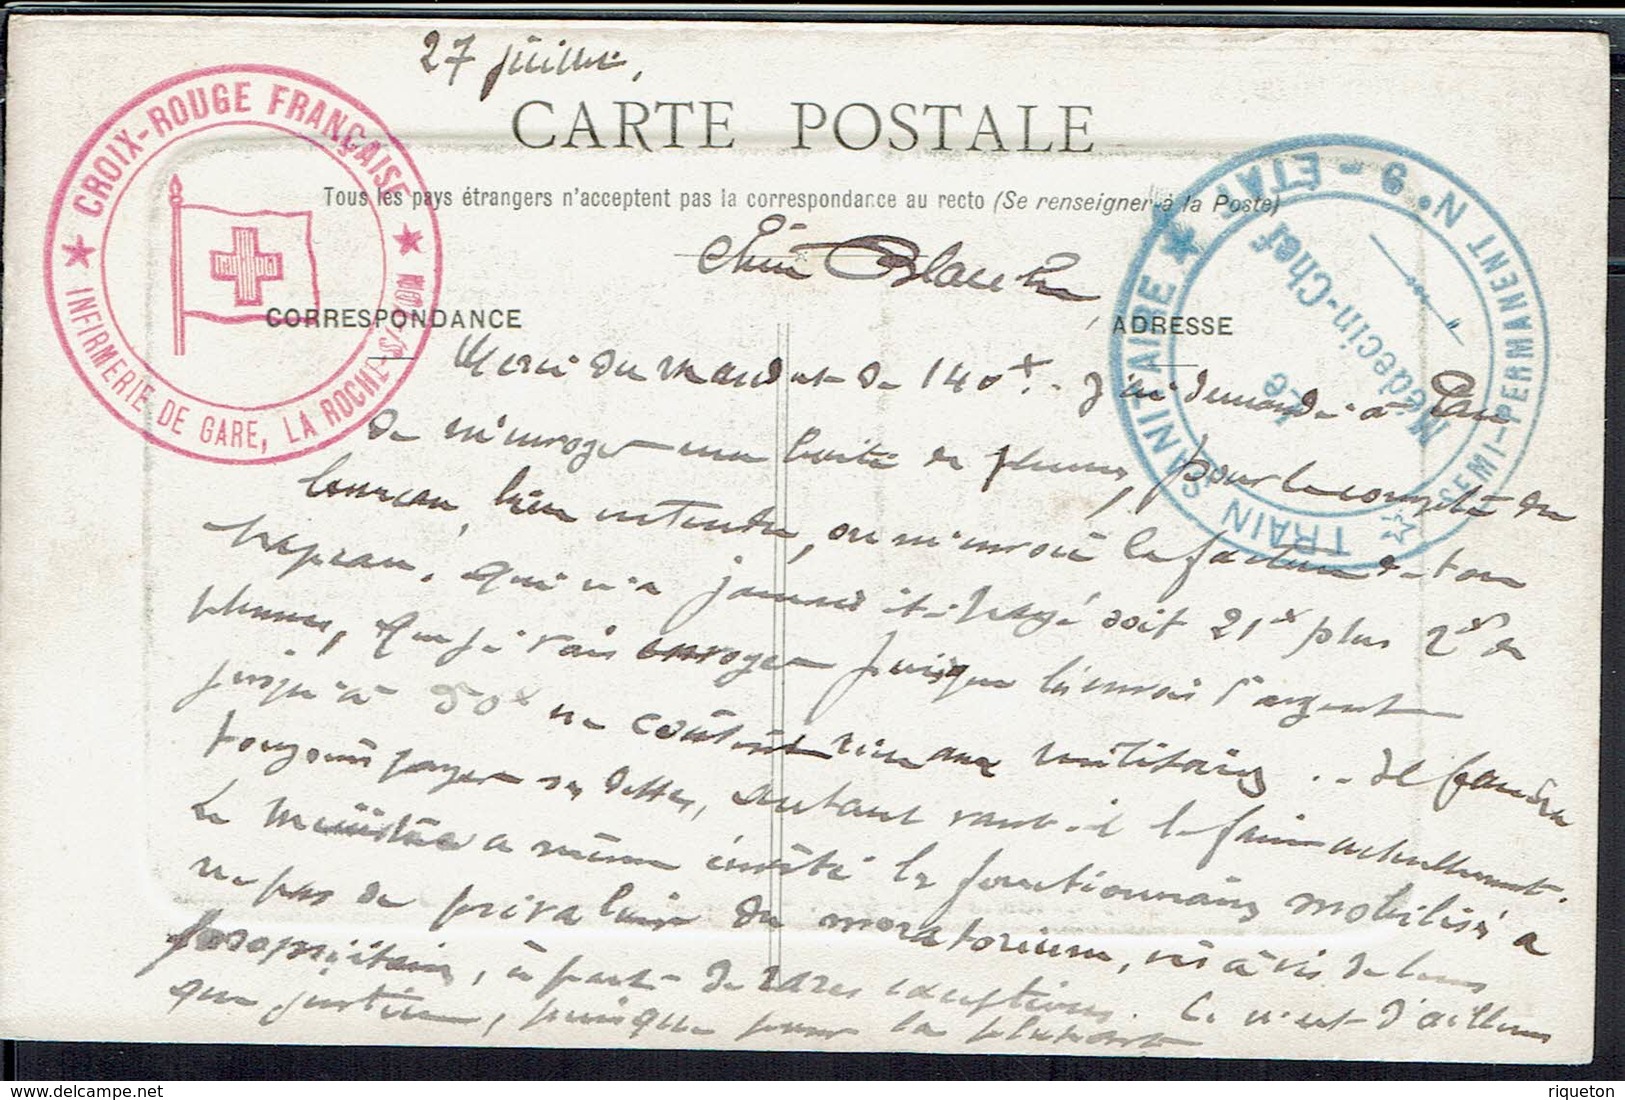 27 juillet,
CARTE POSTALE
Tous les pays étrangers n'acceptent pas la correspondance au recto (Se renseigner à la Poste)
CROIX-ROUGE FRANÇAISE
INFIRMERIE DE GARE, LA ROCHE-S/YON
TRAIN SANITAIRE
SEMI-PERMANENT N° 9 - ÉTAT
Le
Médecin-Chef
Blanche,
CORRESPONDANCE
ADRESSE
Merci du mandat de 140 f. J'ai demandé à
de m'envoyer une boite de plumes, pour le compte du
bureau, bien entendu, on m'envoie la facture de ton
jamais été payé soit 21 f plus 2 f de
plumes, que je vais envoyer puisque l'envoi d'argent
jusqu'à 50 f ne coûtent rien aux militaires. Il faudra
toujours payer ses dettes, autant vaut-il le faire actuellement.
Le Ministère a même invité les fonctionnaires mobilisés à
ne pas se prévaloir du moratorium, vis à vis de leurs
propriétaires, à part de rares exceptions. Ce n'est d'ailleurs
que justice, puisque pour la plupart
riqueton